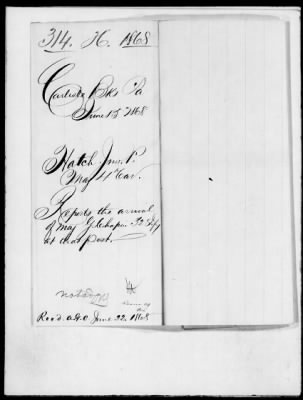 314. H. 1868
Carlisle Bks Pa
June 15" 1868
Hatch Jno. P.
Maj 4" Cav.
Reports the arrival
of Maj G. Chapin
at that post.
Rec'd. A.G.O. June 22. 1868